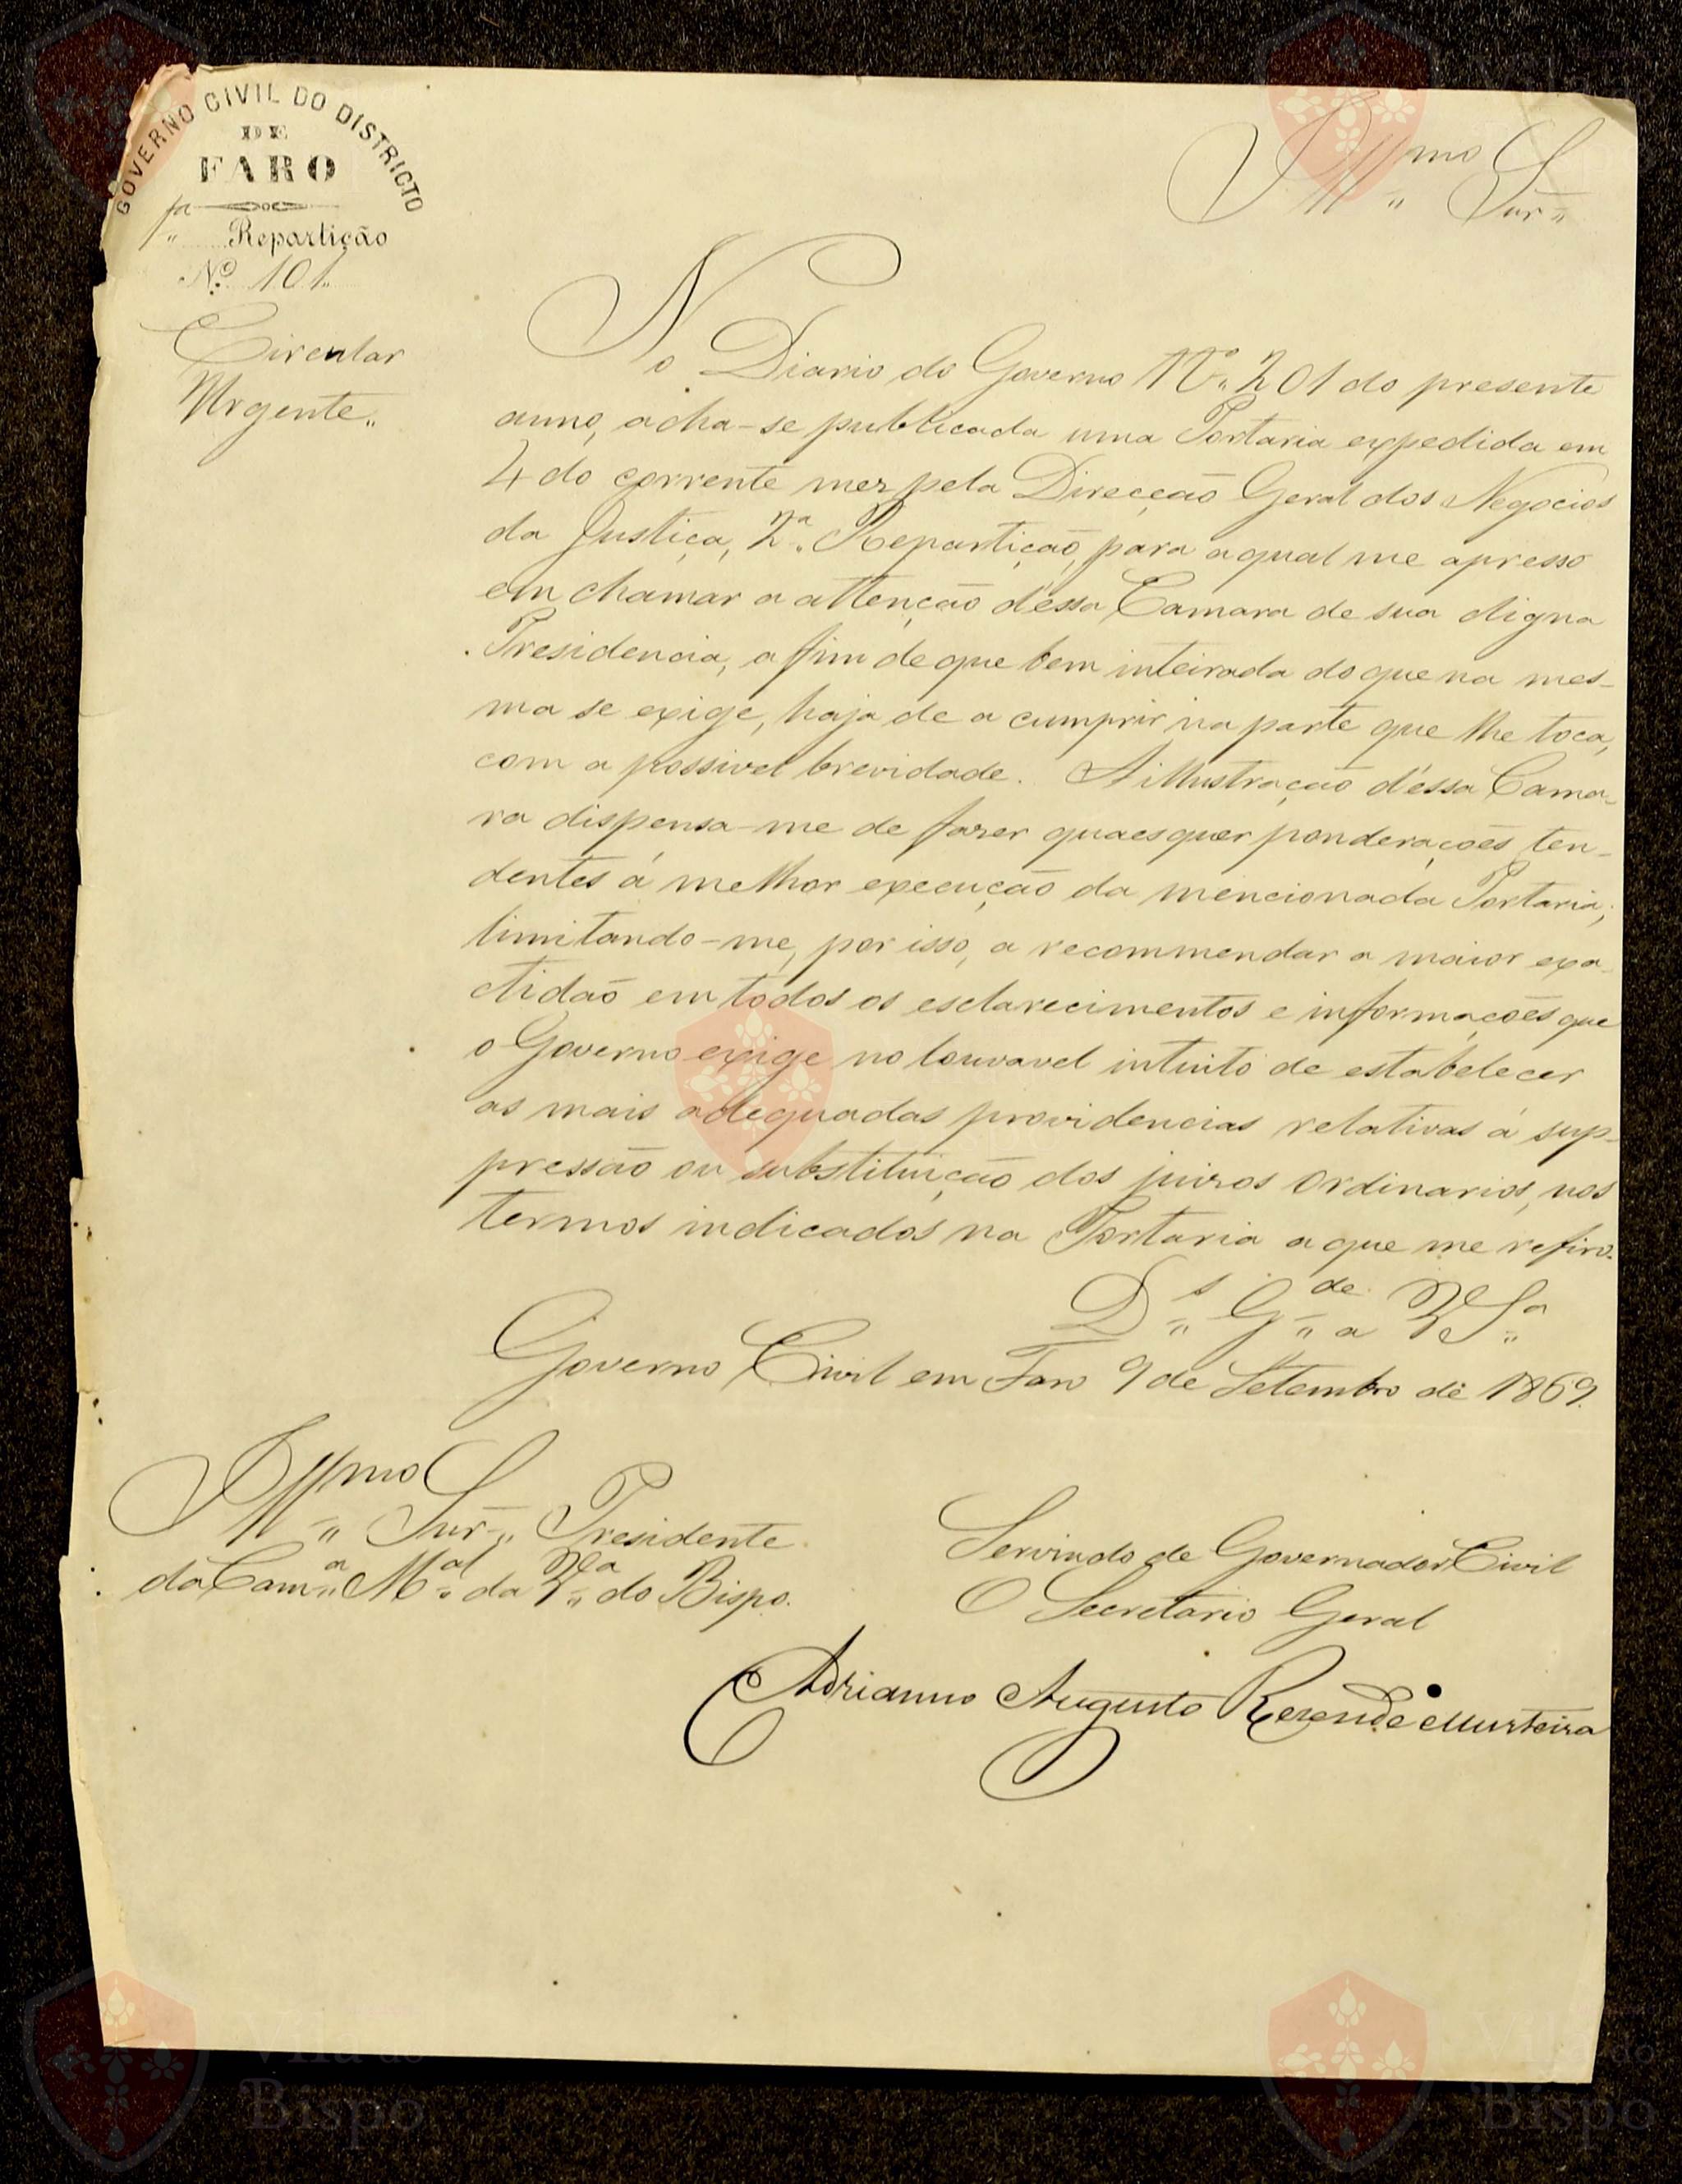 GOVERNO CIVIL DO DISTRICTO
DE
FARO
1ª Repartição
Nº 101
Circular
Urgente
Illmo Snr
No Diario do Governo Nº 201 do presente
anno, acha-se publicada uma Portaria expedida em
4 do corrente mez pela Direcção Geral dos Negocios
da Justiça, 2ª Repartição, para a qual me apresso
em chamar a attenção d'essa Camara de sua digna
Presidencia, a fim de que bem inteirada do que na mes-
ma se exige, haja de a cumprir na parte que lhe toca,
com a possivel brevidade. A illustração d'essa Cama-
ra dispensa-me de fazer quaesquer ponderações ten-
dentes á melhor execução da mencionada Portaria;
limitando-me, por isso, a recommendar a maior exa-
ctidão em todos os esclarecimentos e informações que
o Governo exige no louvavel intuito de estabelecer
as mais adequadas providencias relativas á sup-
pressão ou substituição dos juizos ordinarios, nos
termos indicados na Portaria a que me refiro.
Ds Gde a V Sa
Governo Civil em Faro 9 de Setembro de 1869.
Illmo Snr Presidente
da Camª Mal da Vª do Bispo.
Servindo de Governador Civil
O Secretario Geral
Adrianno Augusto Rezende Murteira
Vila do
Bispo
do
Bispo